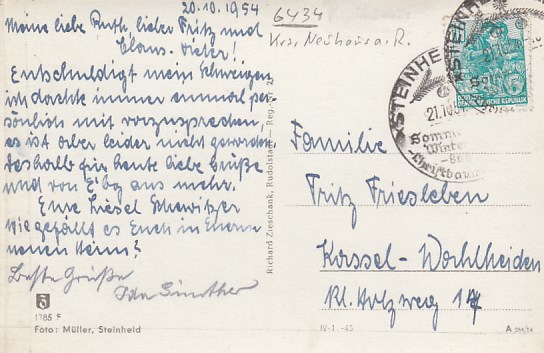 20.10.1954
Meine liebe Ruth, lieber Fritz und
Claus-Dieter!
Entschuldigt mein Schweigen
ich dachte immer einmal per-
sönlich mit vorzusprechen,
es ist aber leider nicht geworden
deshalb für heute liebe Grüße
und von Ebg aus mehr.
Eure Liesel
Wie gefällt es Euch in Eurem
neuen Heim?
Beste Grüße
Ida Günther
1785 F
Foto: Müller, Steinheid
Richard Zieschank, Rudolstadt - Reg.-Nr.
6434
Krs. Neuhaus a. R.
STEINHEID
21.10.
Somm
Winter
Christbaum
Familie
Fritz Friesleben
Kassel-Wahlheiden
Kl. Holzweg 17
IV-1-45
A